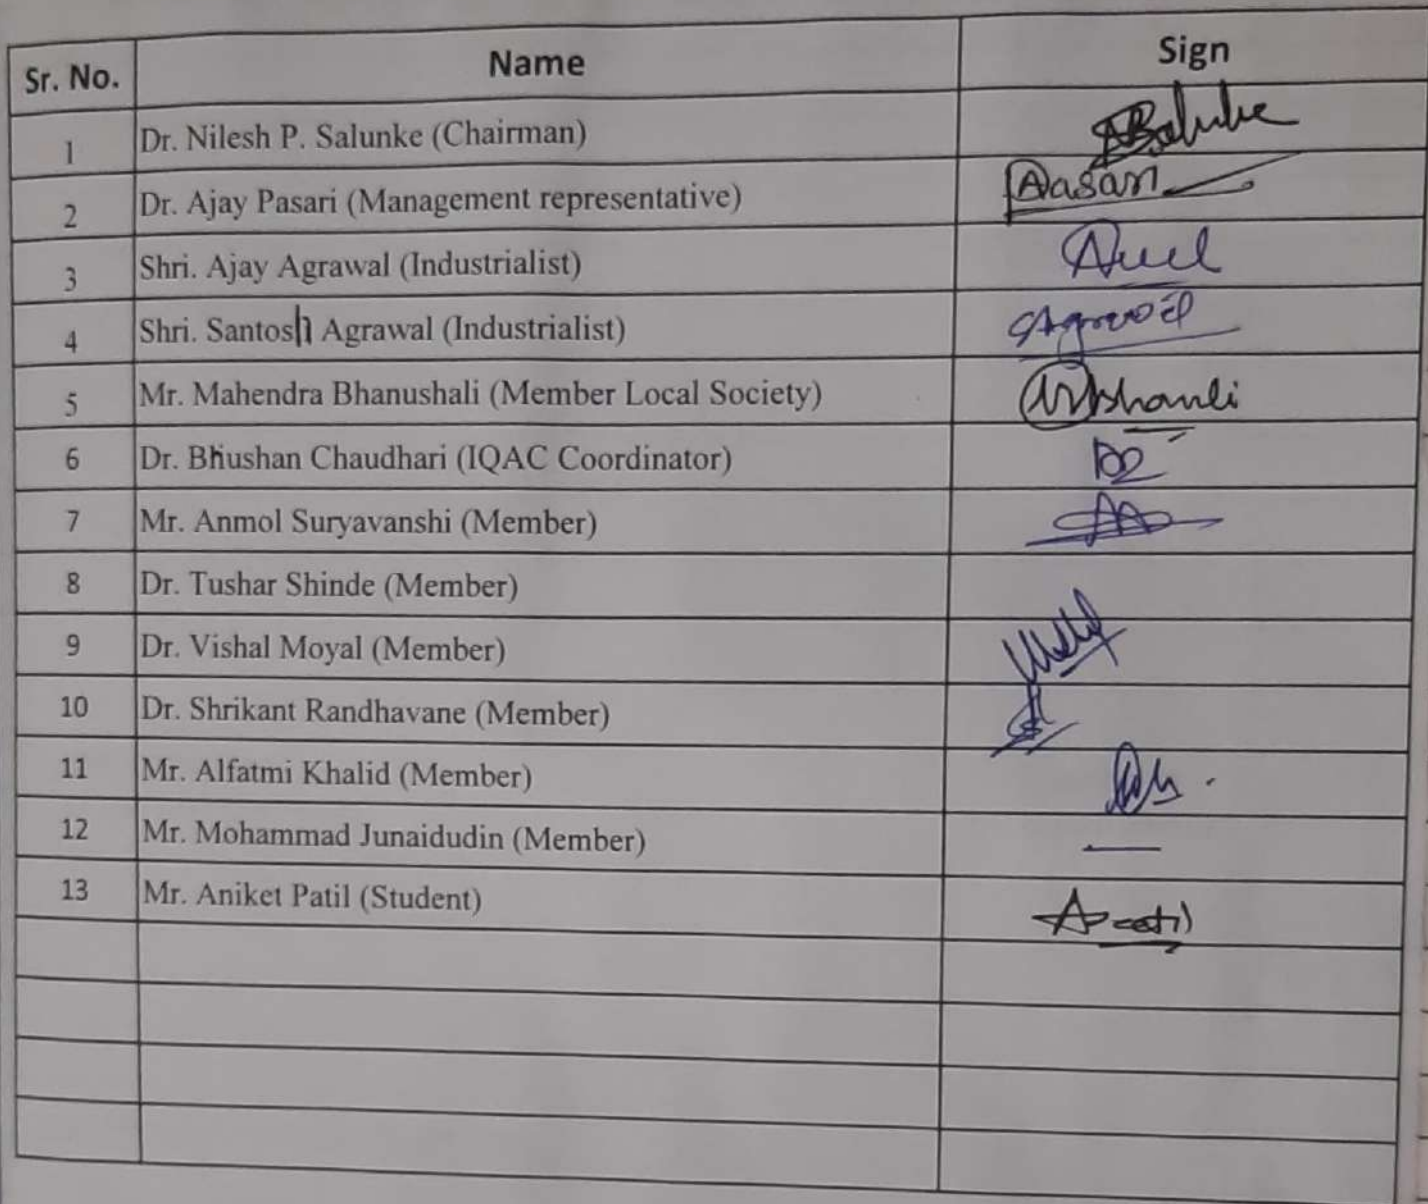 Sr. No. Name Sign
1 Dr. Nilesh P. Salunke (Chairman) Salunke
2 Dr. Ajay Pasari (Management representative) Pasari
3 Shri. Ajay Agrawal (Industrialist)
4 Shri. Santosh Agrawal (Industrialist) Agrawal
5 Mr. Mahendra Bhanushali (Member Local Society)
6 Dr. Bhushan Chaudhari (IQAC Coordinator)
7 Mr. Anmol Suryavanshi (Member)
8 Dr. Tushar Shinde (Member)
9 Dr. Vishal Moyal (Member)
10 Dr. Shrikant Randhavane (Member)
11 Mr. Alfatmi Khalid (Member)
12 Mr. Mohammad Junaidudin (Member) —
13 Mr. Aniket Patil (Student) Apatil